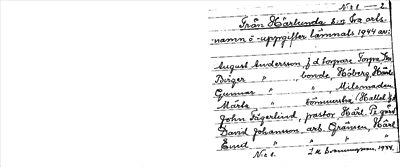 N:r 1 — 2
Från Härlunda s:n Fra orts-
namn o -uppgifter lämnats 1944 av:
August Andersson, f.d. torpare, Torpa,
Birger " , bonde, Höberg, Härl.
Gunnar " , " , Milsmaden
Märta " , (Hallet
John Fägerlind, pastor, Härl. Pr.gård
David Johansson, arb. Gränsen, Härl.
Emil " , " " "
N:r 1. 1944.